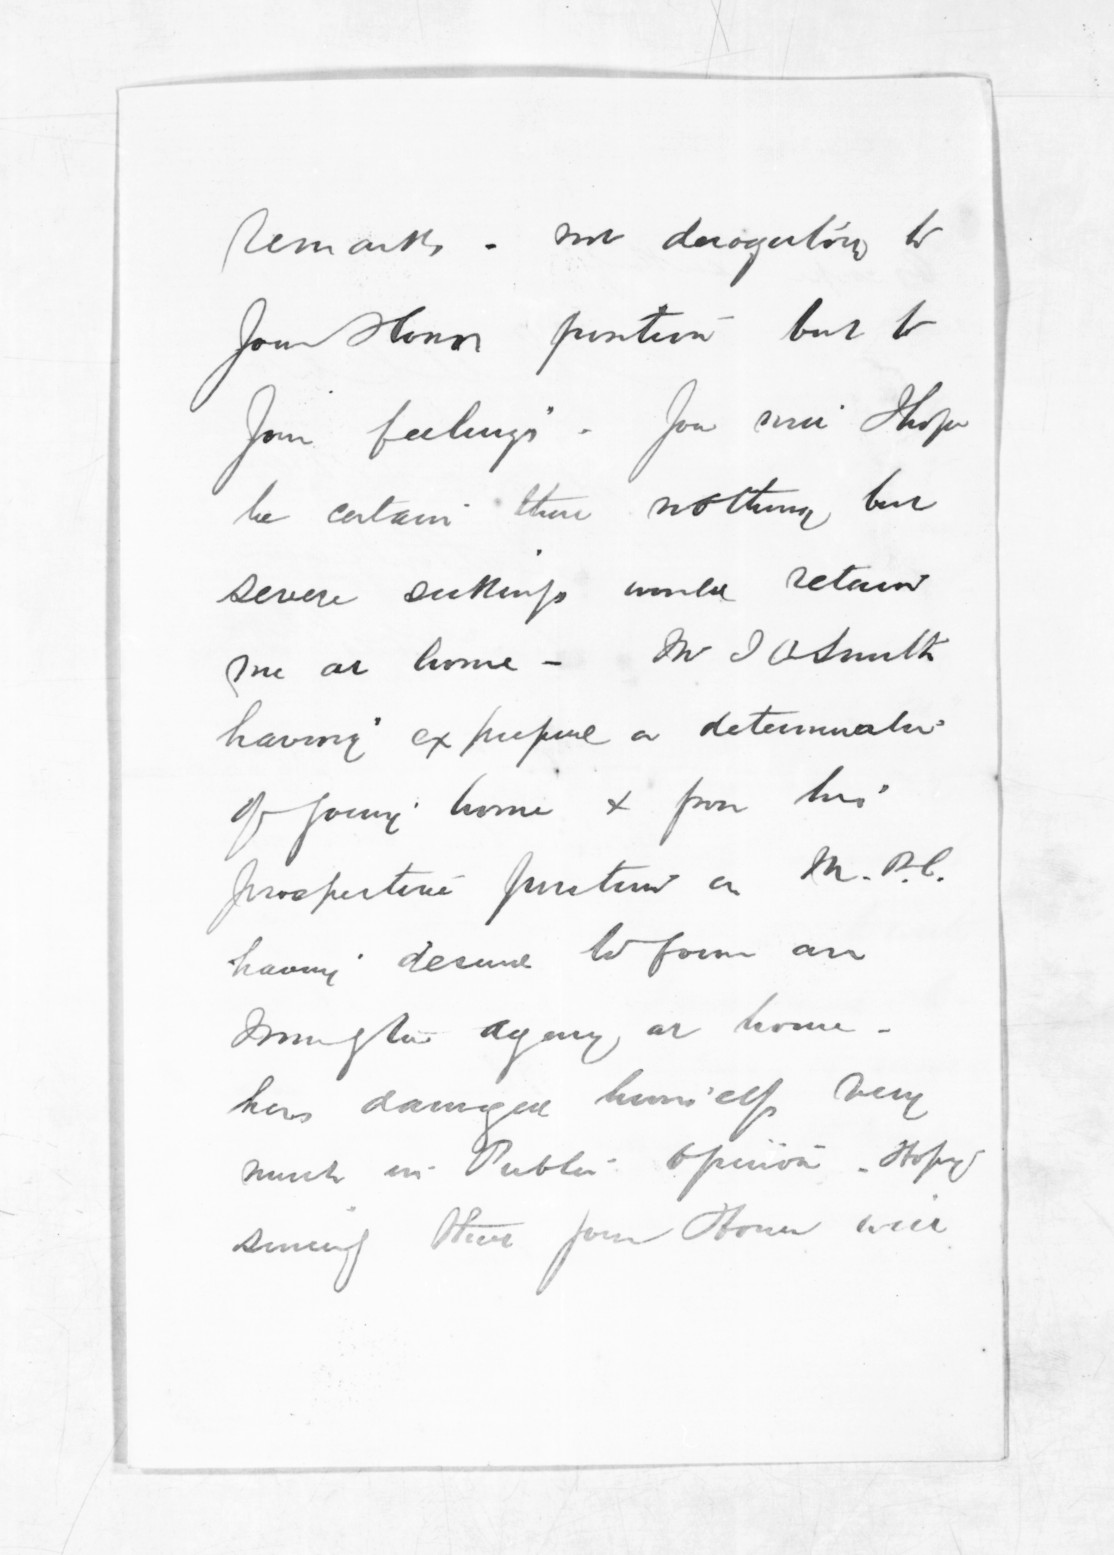 remarks - not derogatory to
Your Honor position but to
Your feelings - You will I hope
be certain there nothing but
severe would retain
me at home - Mr J A Smith
having a determination
of going home & from his
prospective position as M.P.C.
having desire to form an
agency at home -
has damaged himself very
much in Public opinion - Hoping
sincerely that your Honor will